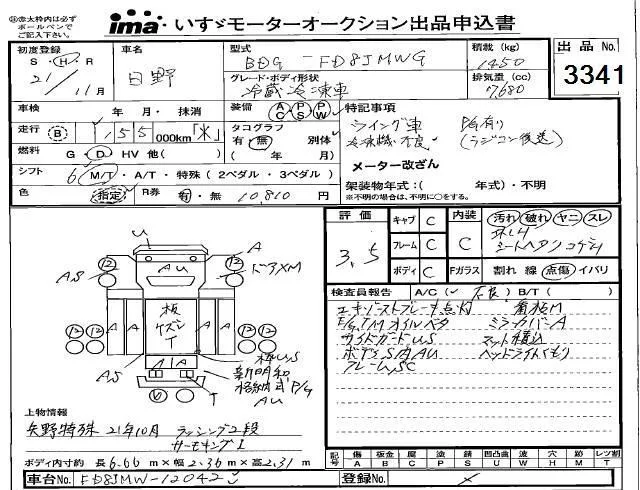 ㊟赤太枠内は必ず
ボールペンで
ご記入下さい。
ima いすゞモーターオークション出品申込書
初度登録
S・H・R
21/11月
車名
日野
型式
BDG-FD8JMWG
積載(kg)
1450
出品No.
3341
グレード・ボディ形状
冷蔵冷凍車
排気量(cc)
7,680
車検
年 月・抹消
装備 AC PS PW
特記事項
走行 B 155 000km「米」
タコグラフ
有・無 別体
( 年 月)
ウイング車 PG有り
冷凍機不良 (ラジコン後送)
メーター改ざん
燃料 G D HV 他( )
シフト 6 M/T・A/T・特殊(2ペダル・3ペダル)
架装物年式:( 年式)・不明
※不明の場合は、不明に○をする。
色 指定 R券 有・無 10,810円
評価
3.5
キャブ C
フレーム C
ボディ C
内装 C
Fガラス
汚れ 破れ ヤニ スレ
割れ 線 点傷 イバリ
検査員報告 A/C(レ 不良)B/T( )
エキゾーストブレーキ点灯
E/G,TMオイルベタ ミラーカバーA
サイドガードUS マット積込
ボディS内AU ヘッドライトくもり
フレームSC
U
A
12
12
AU
AS
ドアXM
12
12
12
12
A
A
A
A
板
T
A
A
AS
枠US
新明和
格納式P/G
AU
T
上物情報
矢野特殊 21年10月 ラッシング2段
サーモキング1
ボディ内寸約 長6.66m×幅2.36m×高2.31m
記号 傷 A 板金 B 腐 C 塗 P 錆 S 凹凸曲 U 波 W 穴 H 跡 M レツ割 T
車台No. FD8JMW-12042
登録No.